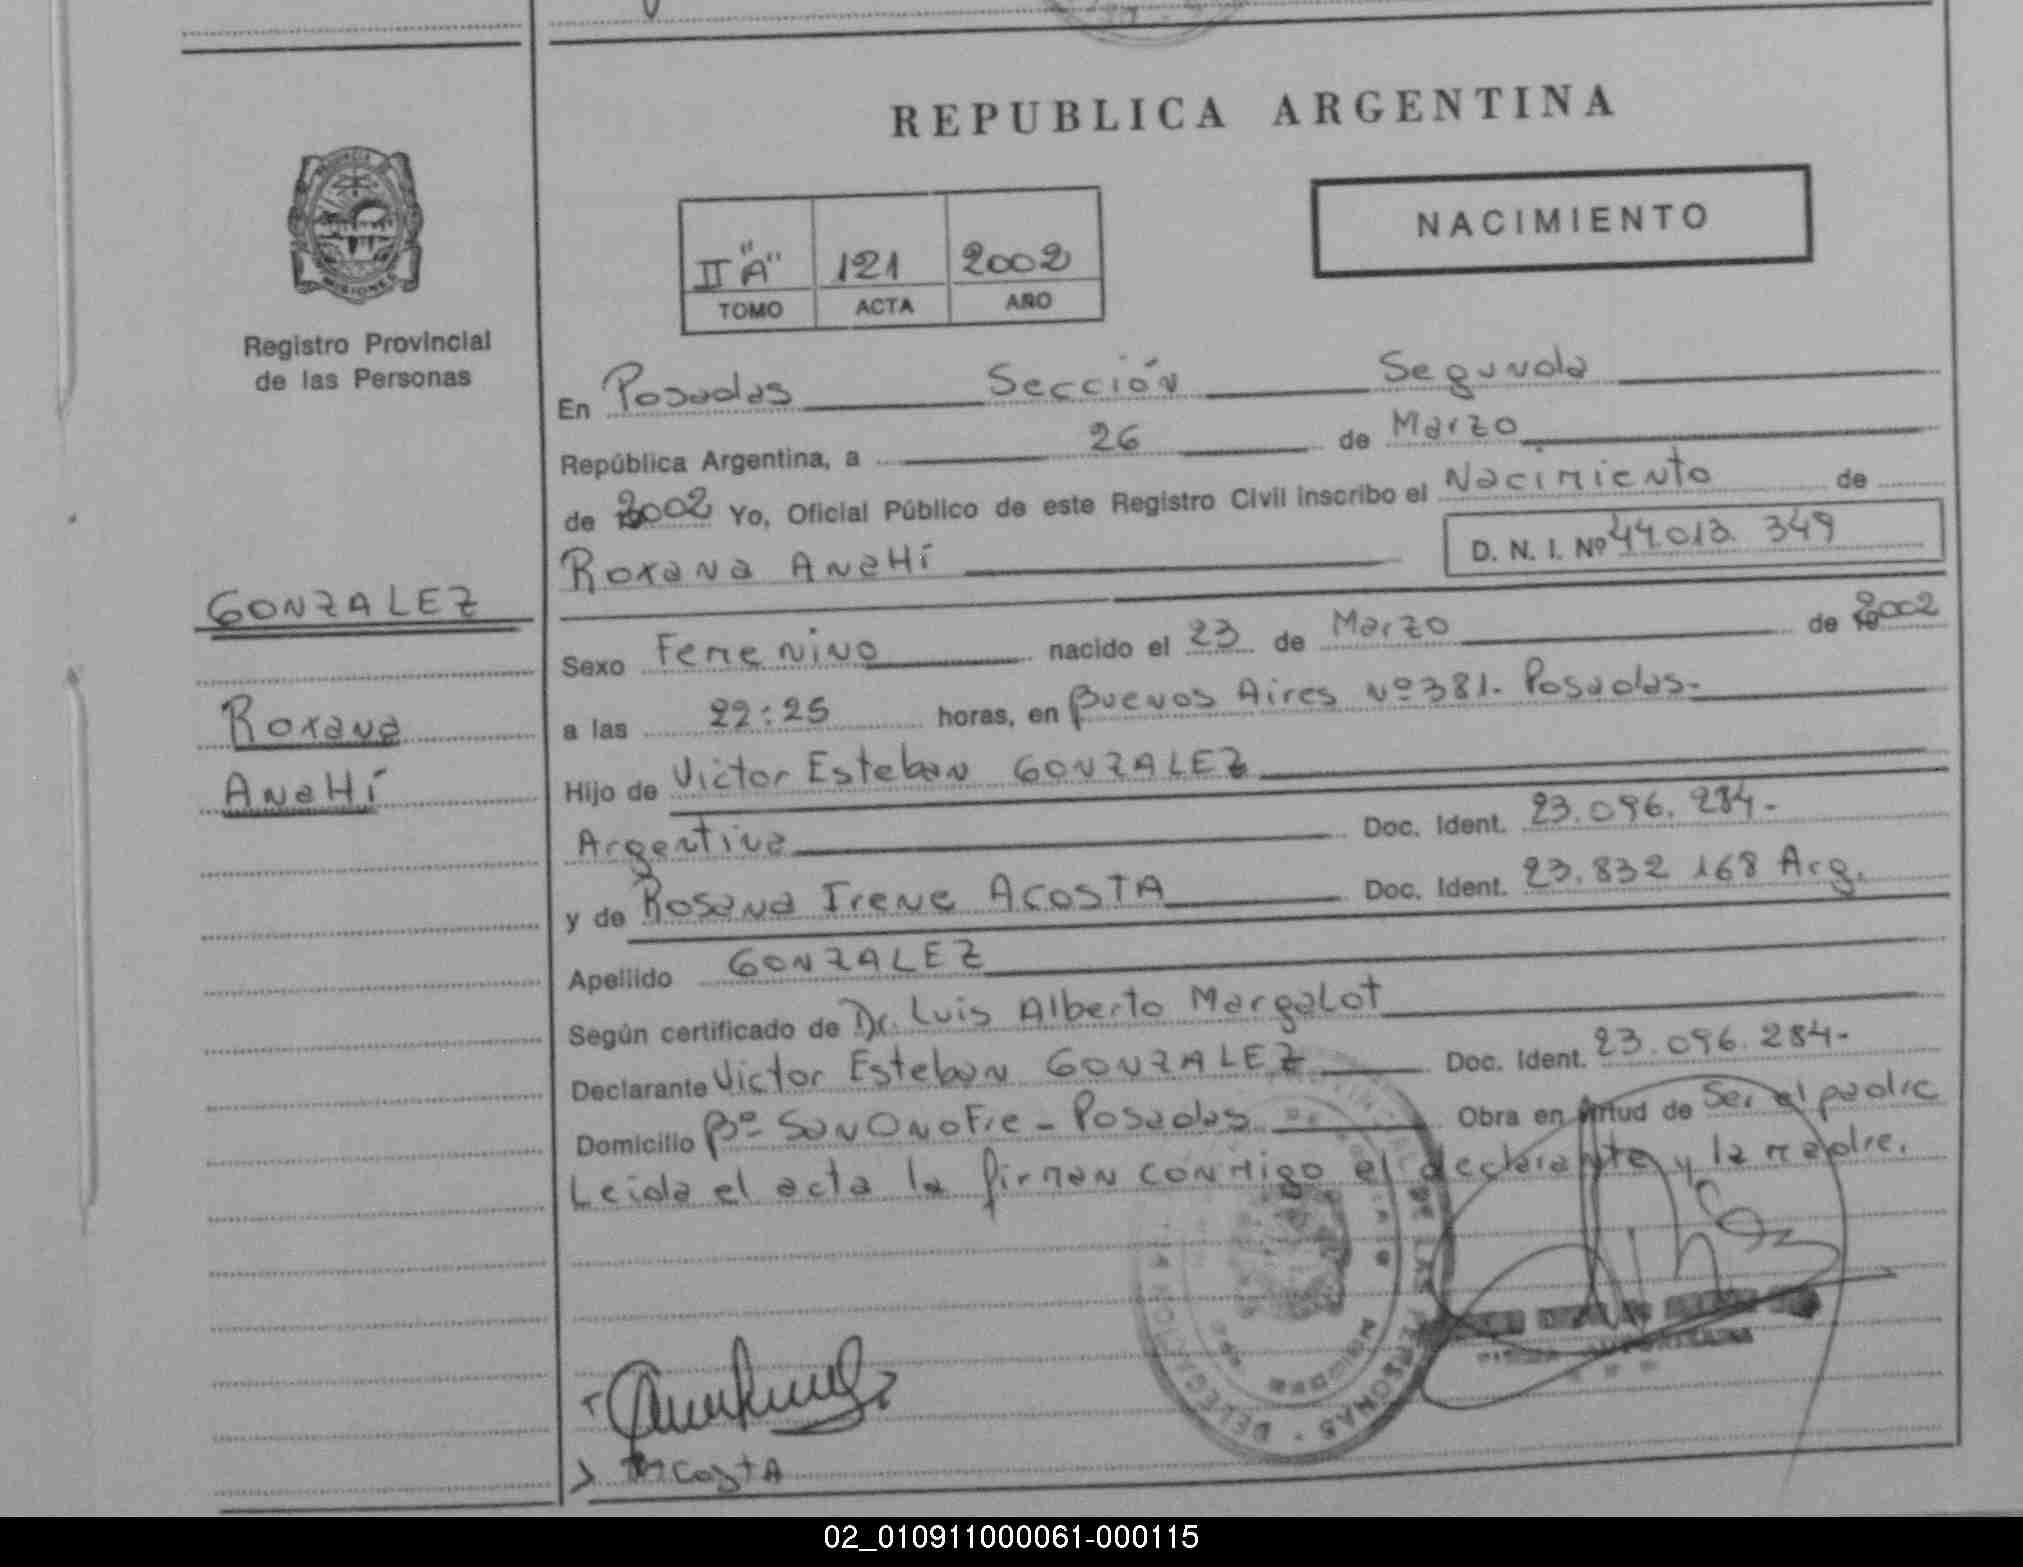 REPUBLICA ARGENTINA
NACIMIENTO
II "A" 121 2002
TOMO ACTA AÑO
PROVINCIA
MISIONES
Registro Provincial
de las Personas
GONZALEZ
Roxana
AnaHí
En Posadas Sección Segunda
República Argentina, a 26 de Marzo
de 2002 Yo, Oficial Público de este Registro Civil inscribo el Nacimiento de
Roxana AnaHí D. N. I. Nº 44.013.349
Sexo Femenino nacido el 23 de Marzo de 2002
a las 22:25 horas, en Buenos Aires Nº 381. Posadas-
Hijo de Victor Esteban GONZALEZ
Argentina Doc. Ident. 23.096.284-
y de Rosana Irene ACOSTA Doc. Ident. 23.832 168 Arg.
Apellido GONZALEZ
Según certificado de Dr. Luis Alberto Margalot
Declarante Victor Esteban GONZALEZ Doc. Ident. 23.096.284-
Domicilio Bº San Onofre - Posadas Obra en virtud de Ser el padre
Leida el acta la firman conmigo el declarante y la madre.
DE LAS PERSONAS - DELEGACION
AcostA
02_010911000061-000115